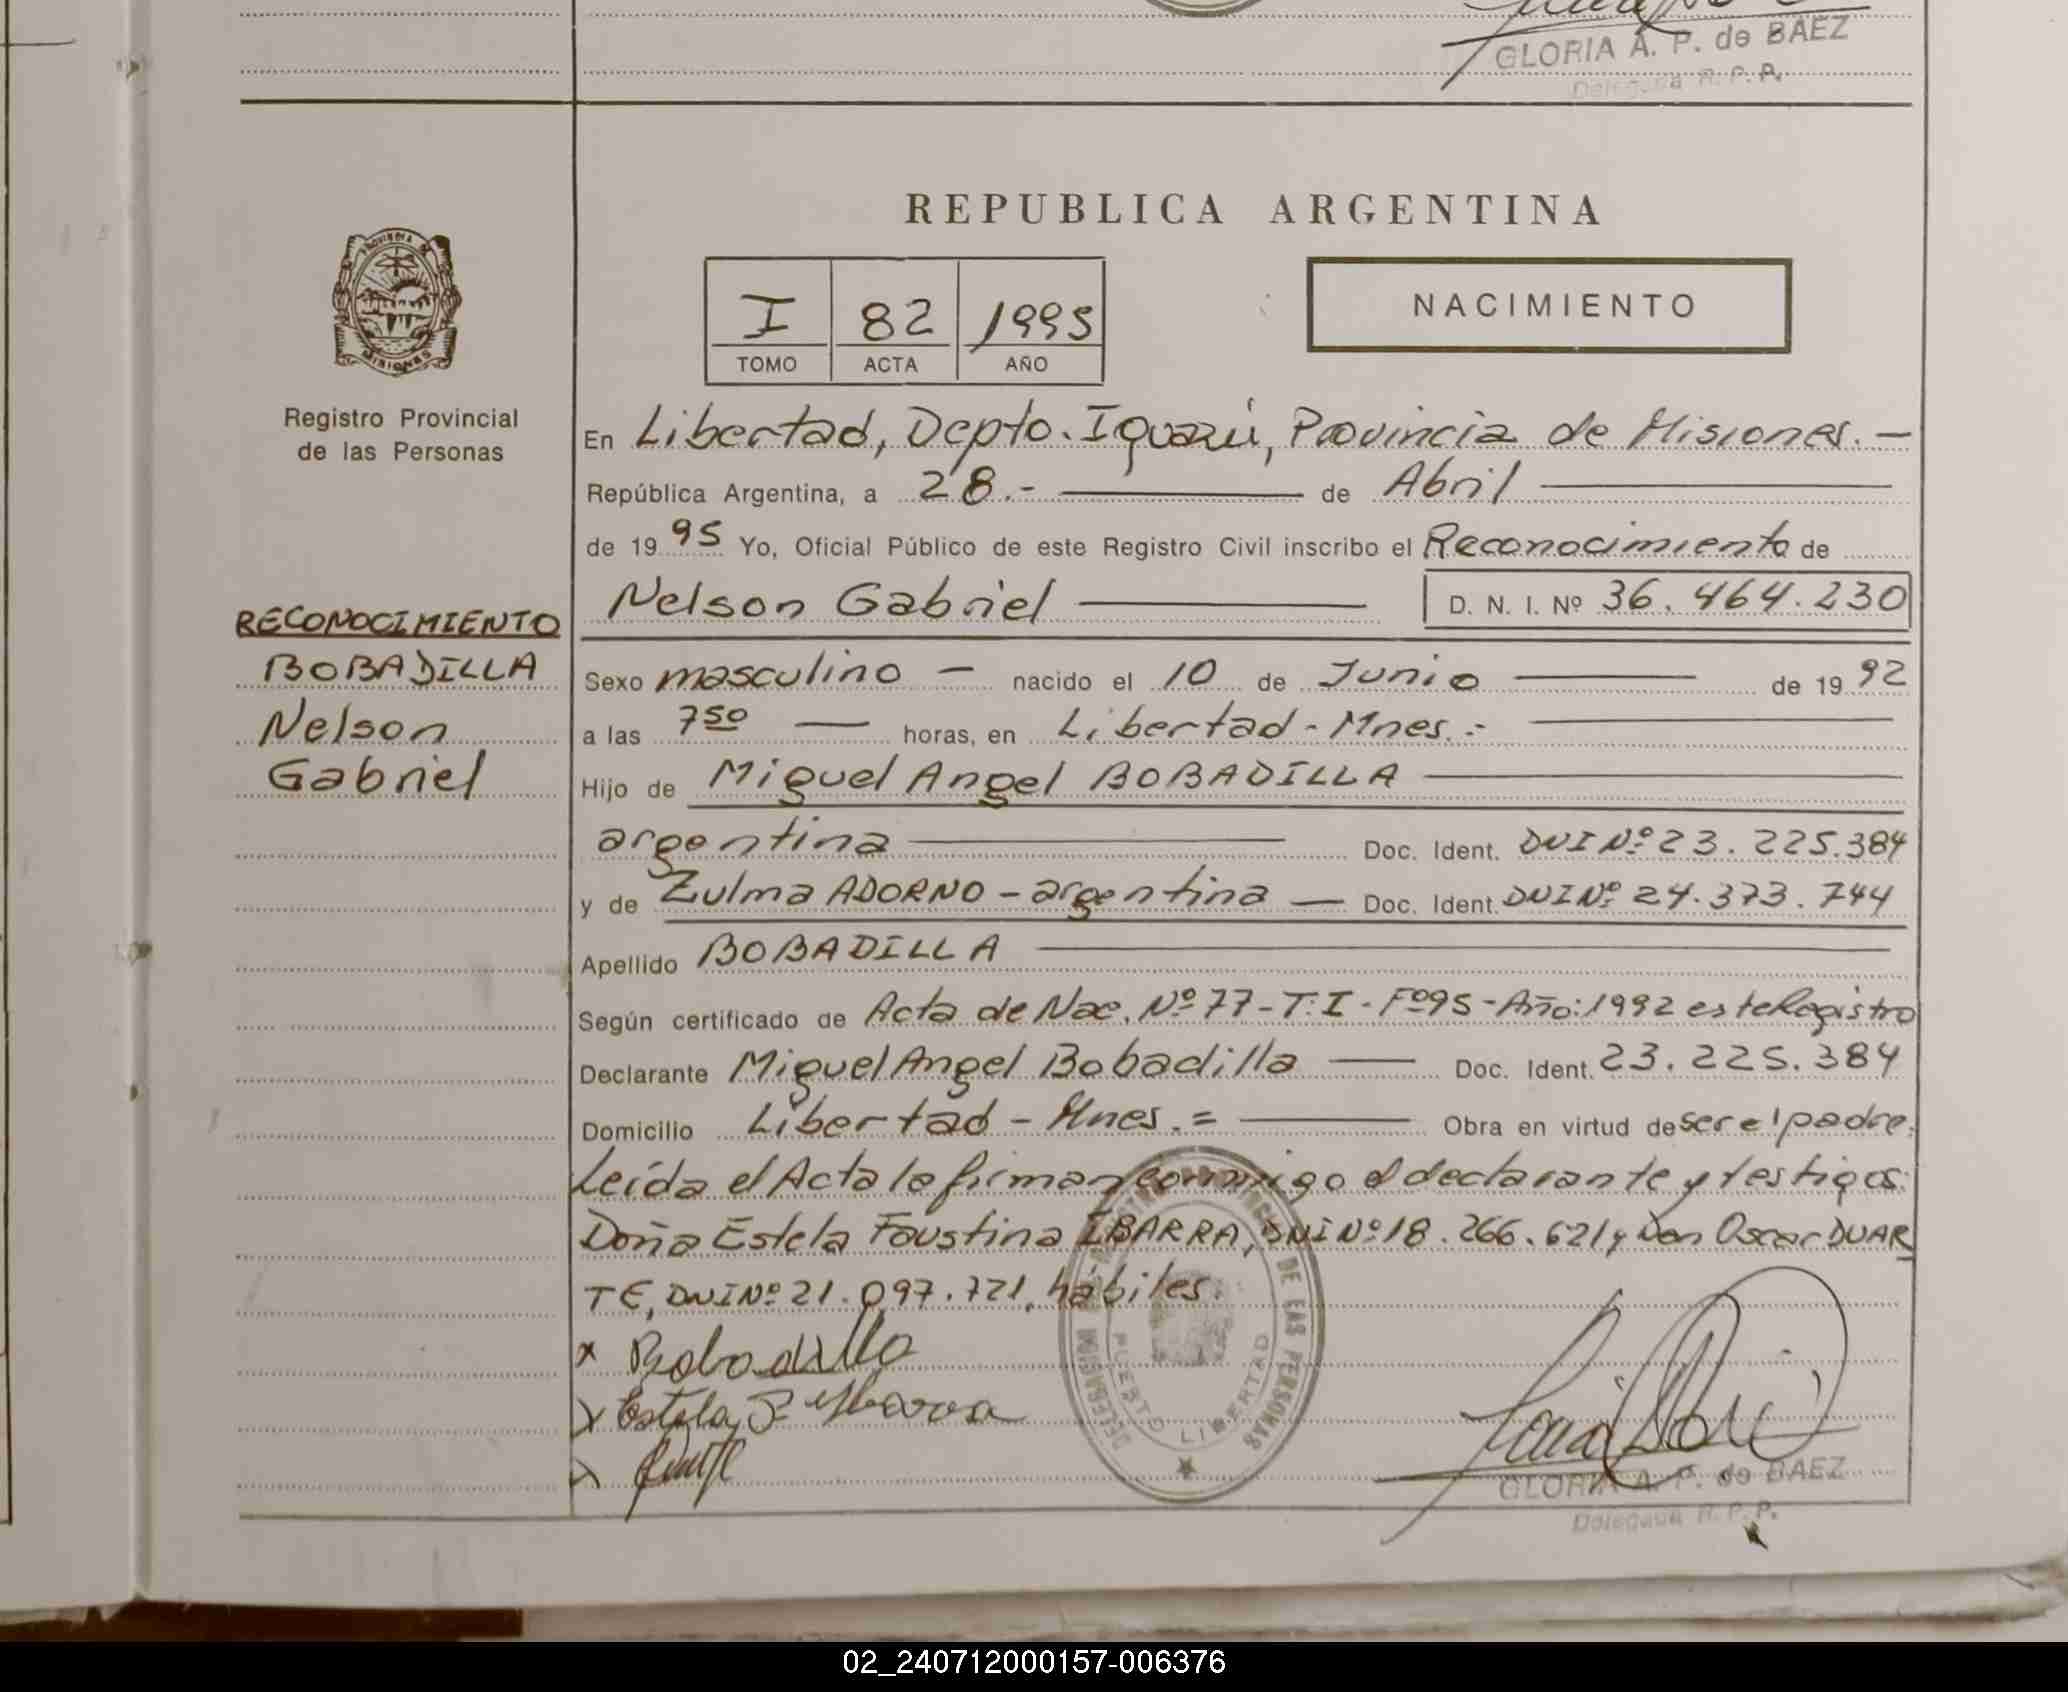 GLORIA A. P. de BAEZ
Delegada R. P. P.
REPUBLICA ARGENTINA
PROVINCIA DE
MISIONES
Registro Provincial
de las Personas
I 82 1995
TOMO ACTA AÑO
NACIMIENTO
En Libertad, Depto. Iguazú, Provincia de Misiones. —
República Argentina, a 28.- — de Abril —
de 1995 Yo, Oficial Público de este Registro Civil inscribo el Reconocimiento de
Nelson Gabriel — D. N. I. Nº 36.464.230
RECONOCIMIENTO
BOBADILLA
Nelson
Gabriel
Sexo masculino — nacido el 10 de Junio — de 1992
a las 7 50 — horas, en Libertad - Mnes. - —
Hijo de Miguel Angel BOBADILLA —
argentina — Doc. Ident. DNI Nº 23.225.384
y de Zulma ADORNO - argentina — Doc. Ident. DNI Nº 24.373.744
Apellido BOBADILLA —
Según certificado de Acta de Nac. Nº 77 - T: I - Fº 95 - Año: 1992 este Registro
Declarante Miguel Angel Bobadilla — Doc. Ident. 23.225.384
Domicilio Libertad - Mnes. = — Obra en virtud de ser el padre.
Leída el Acta la firman conmigo el declarante y testigos:
Doña Estela Faustina IBARRA, DNI Nº 18.266.621 y Don Oscar DUAR
TE, DNI Nº 21.097.721, hábiles.
x Bobadilla
x Estela F. Ybarra
x
DE LAS PERSONAS
PUERTO LIBERTAD
GLORIA A. P. de BAEZ
Delegada R. P. P.
02_240712000157-006376